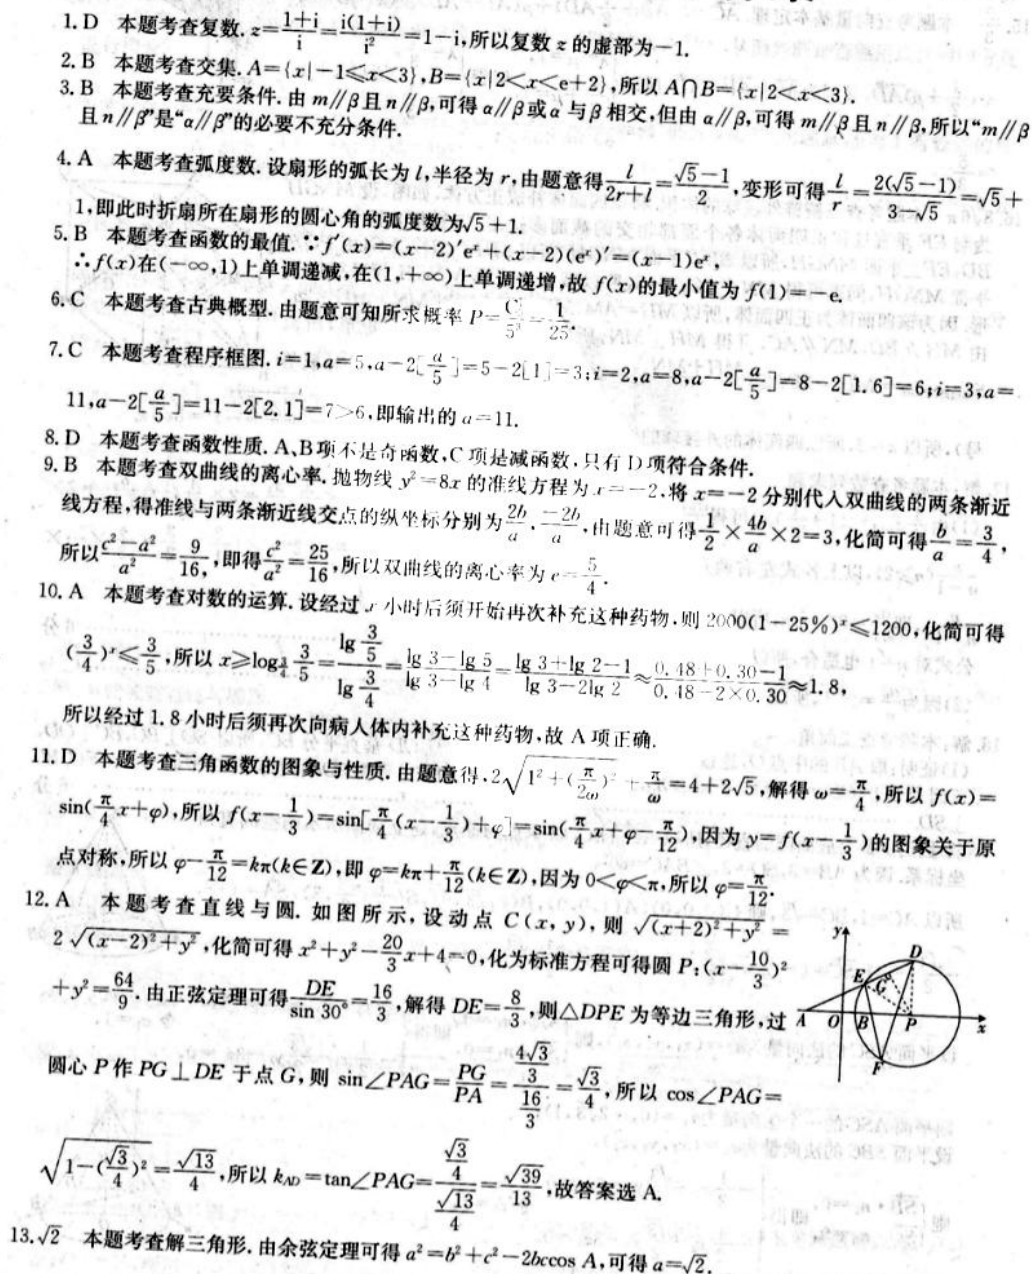 1. D 本题考查复数. z=\frac{1+i}{i}=\frac{i(1+i)}{i²}=1-i,所以复数 z 的虚部为-1.
2. B 本题考查交集. A={x|-1≤x<3},B={x|2<x<e+2},所以 A∩B={x|2<x<3}.
3. B 本题考查充要条件. 由 m∥β且 n∥β,可得 α∥β或 α 与 β 相交,但由 α∥β,可得 m∥β且 n∥β,所以“m∥β
且 n∥β”是“α∥β”的必要不充分条件.
4. A 本题考查弧度数. 设扇形的弧长为 l,半径为 r,由题意得\frac{l}{2r+l}=\frac{√5-1}{2},变形可得\frac{l}{r}=\frac{2(√5-1)}{3-√5}=√5+
1,即此时折扇所在扇形的圆心角的弧度数为√5+1.
5. B 本题考查函数的最值. ∵f′(x)=(x-2)′eˣ+(x-2)(eˣ)′=(x-1)eˣ,
∴f(x)在(-∞,1)上单调递减,在(1,+∞)上单调递增,故 f(x)的最小值为 f(1)=-e.
6. C 本题考查古典概型. 由题意可知所求概率 P= =\frac{1}{25}.
7. C 本题考查程序框图. i=1,a=5,a-2[\frac{a}{5}]=5-2[1]=3;i=2,a=8,a-2[\frac{a}{5}]=8-2[1.6]=6;i=3,a=
11,a-2[\frac{a}{5}]=11-2[2.1]=7>6,即输出的 a=11.
8. D 本题考查函数性质. A、B项不是奇函数,C 项是减函数,只有 D 项符合条件.
9. B 本题考查双曲线的离心率. 抛物线 y²=8x 的准线方程为 x=-2,将 x=-2 分别代入双曲线的两条渐近
线方程,得准线与两条渐近线交点的纵坐标分别为\frac{2b}{a},\frac{-2b}{a},由题意可得\frac{1}{2}×\frac{4b}{a}×2=3,化简可得\frac{b}{a}=\frac{3}{4},
所以\frac{c²-a²}{a²}=\frac{9}{16},即得\frac{c²}{a²}=\frac{25}{16},所以双曲线的离心率为 e=\frac{5}{4}.
10. A 本题考查对数的运算. 设经过 x 小时后须开始再次补充这种药物,则 2000(1-25%)ˣ≤1200,化简可得
(\frac{3}{4})ˣ≤\frac{3}{5},所以 x≥log_{\frac{3}{4}}\frac{3}{5}=\frac{lg\frac{3}{5}}{lg\frac{3}{4}}=\frac{lg 3-lg 5}{lg 3-lg 4}=\frac{lg 3+lg 2-1}{lg 3-2lg 2}≈\frac{0.48+0.30-1}{0.48-2×0.30}≈1.8,
所以经过 1.8 小时后须再次向病人体内补充这种药物,故 A 项正确.
11. D 本题考查三角函数的图象与性质. 由题意得,2\sqrt{1²+(\frac{π}{2ω})²}+\frac{π}{ω}=4+2√5,解得 ω=\frac{π}{4},所以 f(x)=
sin(\frac{π}{4}x+φ),所以 f(x-\frac{1}{3})=sin[\frac{π}{4}(x-\frac{1}{3})+φ]=sin(\frac{π}{4}x+φ-\frac{π}{12}),因为 y=f(x-\frac{1}{3})的图象关于原
点对称,所以 φ-\frac{π}{12}=kπ(k∈Z),即 φ=kπ+\frac{π}{12}(k∈Z),因为 0<φ<π,所以 φ=\frac{π}{12}.
12. A 本题考查直线与圆. 如图所示,设动点 C(x, y),则 \sqrt{(x+2)²+y²}=
2\sqrt{(x-2)²+y²},化简可得 x²+y²-\frac{20}{3}x+4=0,化为标准方程可得圆 P:(x-\frac{10}{3})²
+y²=\frac{64}{9}. 由正弦定理可得\frac{DE}{sin 30°}=\frac{16}{3},解得 DE=\frac{8}{3},则△DPE 为等边三角形,过
圆心 P 作 PG⊥DE 于点 G,则 sin∠PAG=\frac{PG}{PA}=\frac{\frac{4√3}{3}}{\frac{16}{3}}=\frac{√3}{4},所以 cos∠PAG=
\sqrt{1-(\frac{√3}{4})²}=\frac{√13}{4},所以 k_{AD}=tan∠PAG=\frac{\frac{√3}{4}}{\frac{√13}{4}}=\frac{√39}{13},故答案选 A.
y
D
E
G
A O B P x
F
13. √2 本题考查解三角形. 由余弦定理可得 a²=b²+c²-2bccos A,可得 a=√2.